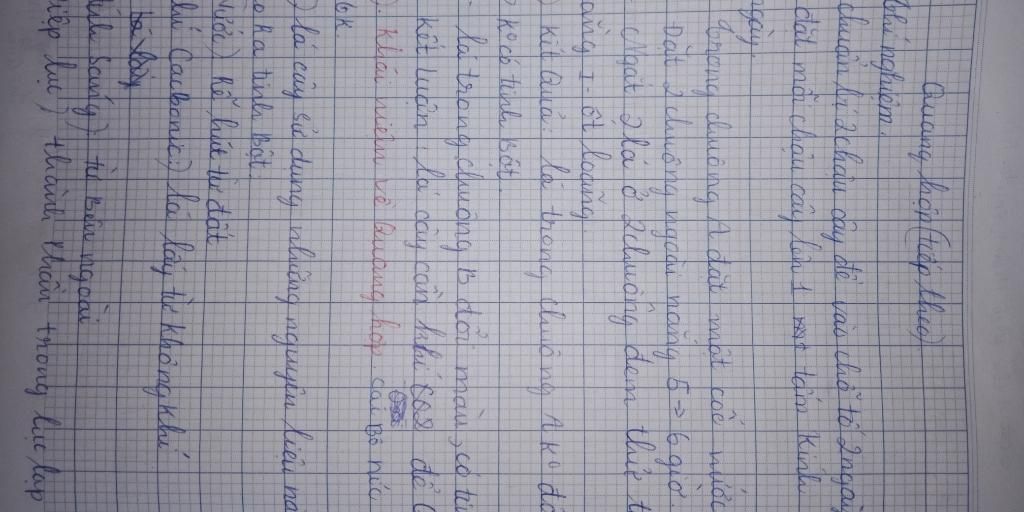 Quang hợp (tiếp theo)
thí nghiệm.
chuẩn bị 2 chậu cây để vào chỗ tối 2 ngày
đặt mỗi chậu cây lên 1 tấm kính
ngày.
Trong chuông A đặt một cốc nước
Đặt 2 chuông ngoài nắng 5 → 6 giờ.
Ngắt 2 lá ở 2 chuông đem thử t
I-ốt loãng
) kết quả: lá trong chuông A k° đổ
) k° có tinh bột.
lá trong chuông B đổi màu > có ti
kết luận: lá cây cần khí CO2 để
). khái niệm về quang hợp.
) lá cây sử dụng những nguyên liệu nà
o ra tinh bột.
Nước) Rễ hút từ đất
hí Cacbonic) lá lấy từ không khí
ánh sáng) từ bên ngoài
iệp lục) thành phần trong lục lạp